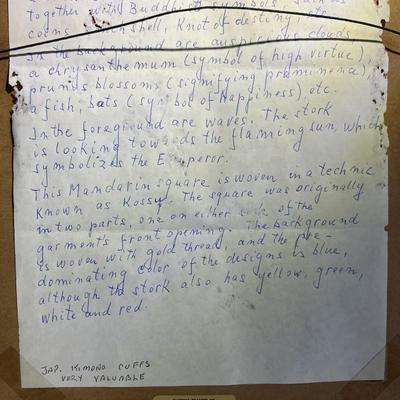 together with Buddhist symbols, such as
coins, conch shell, Knot of destiny, etc.
In the background are auspicious clouds,
a chrysanthemum (symbol of high virtue),
prunus blossoms (signifying prominence),
a fish, bats (symbol of happiness), etc.
In the foreground are waves. The stork
is looking towards the flaming sun, which
symbolizes the Emperor.
This Mandarin square is woven in a technic
Known as Kossu. The square was originally
in two parts, one on either side of the
garment's front opening. The background
is woven with gold thread, and the pre-
dominating color of the designs is blue,
although the stork also has yellow, green,
white and red.
JAP. KIMONO CUFFS
VERY VALUABLE